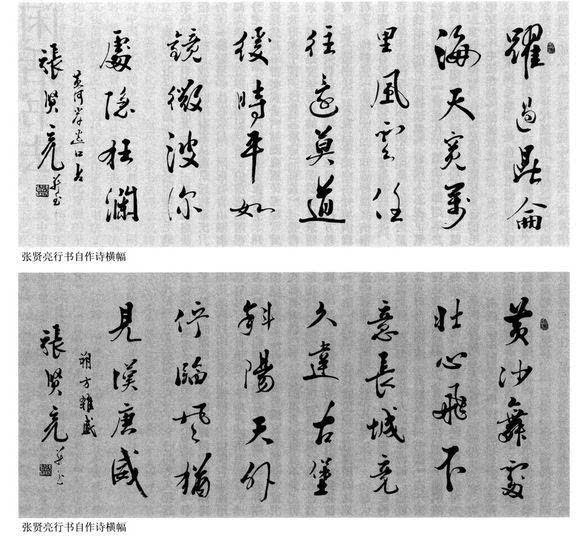 躍過昆侖
海天寬萬
里風雲任
往還莫道
緩時平如
鏡微波深
處隱狂瀾
黄河岸邊口占
張賢亮并書
张贤亮行书自作诗横幅
黄沙舞處
壯心飛不
意長城竟
久違古堡
斜陽天外
佇臨風猶
見漢唐威
朔方雜感
張賢亮并書
张贤亮行书自作诗横幅